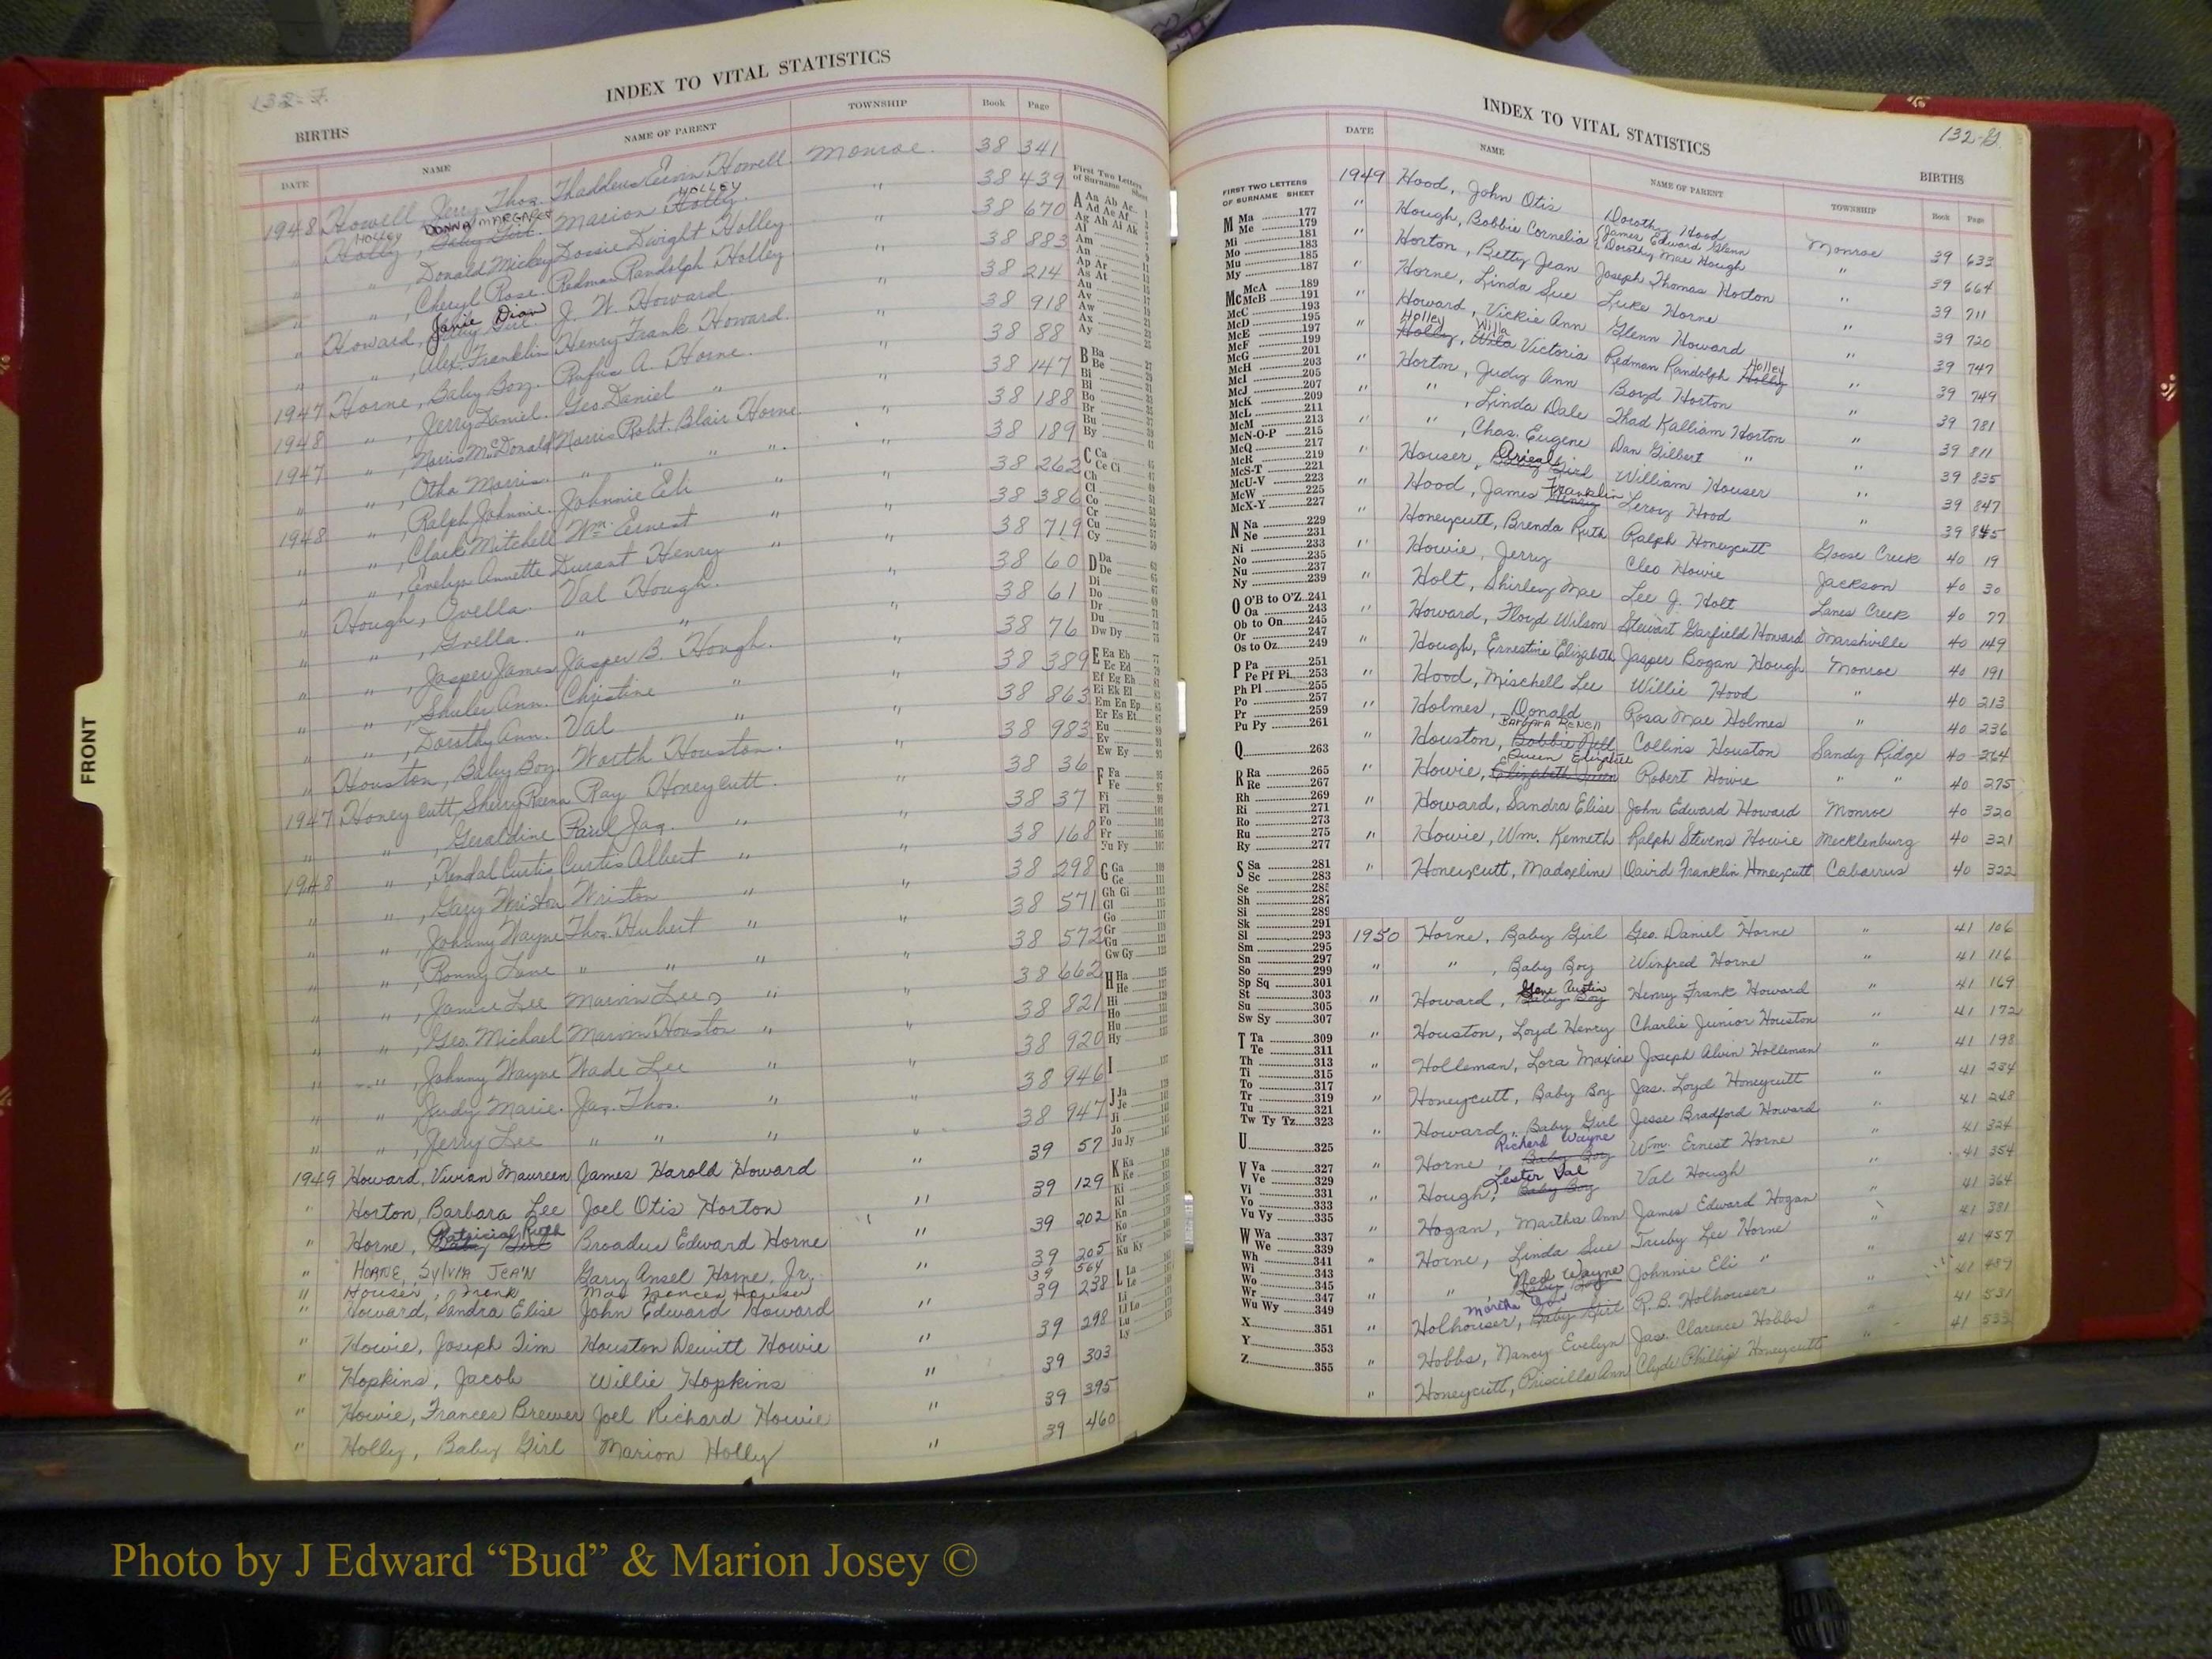 132-F.
INDEX TO VITAL STATISTICS
BIRTHS
DATE NAME NAME OF PARENT TOWNSHIP Book Page
1948 Howell, Jerry Thos. Thaddeus Ervin Howell Monroe. 38 341
" Holly HOLLEY, Baby Girl. DONNA MARGARET Marion Holly. HOLLEY " 38 439
" " , Donald Mickey Dossie Dwight Holley " 38 670
" " , Cheryl Rose. Redman Randolph Holley " 38 883
" Howard, Baby Girl. Janie Dian J. W. Howard " 38 214
" " , Alex. Franklin Henry Frank Howard. " 38 918
1947 Horne, Baby Boy. Rufus A. Horne. " 38 88
1948 " , Jerry Daniel. Geo Daniel " " 38 147
1947 " , Norris McDonald Norris Robt. Blair Horne. " 38 188
" " , Otha Morris. " " " ". " 38 189
" " , Ralph Johnnie. Johnnie Eli " " 38 262
1948 " , Clark Mitchell Wm. Ernest " " 38 386
" " , Evelyn Annette Durant Henry " " 38 719
" Hough, Ovella. Val Hough. " 38 60
" " , Grella. " " " 38 61
" " , Jasper James Jasper B. Hough. " 38 76
" " , Shuler Ann. Christine " " 38 389
" " , Dorothy Ann. Val " " 38 863
" Houston, Baby Boy Worth Houston. " 38 983
1947 Honeycutt, Sherry Rena Ray Honeycutt. " 38 36
" " , Geraldine Paul Jaq. " " 38 37
1948 " , Kendal Curtis Curtis Albert " " 38 168
" " , Gary Wriston Wriston " " 38 298
" " , Johnny Wayne Thos. Hubert " " 38 571
" " , Ronny Lane " " " " 38 572
" " , Janice Lee Marvin Lee " " 38 662
" " , Geo. Michael Marvin Houston " " 38 821
" " , Johnny Wayne Wade Lee " " 38 920
" " , Judy Marie. Jas. Thos. " " 38 946
" " , Jerry Lee " " " " 38 947
1949 Howard, Vivian Maureen James Harold Howard " 39 57
" Horton, Barbara Lee Joel Otis Horton " 39 129
" Horne, Baby Girl Patricia Ruth Broadus Edward Horne " 39 202
" HORNE, SYLVIA JEAN Gary Ansel Horne, Jr. 39 205
" Houser, Frank Mae Frances Houser 39 564
" Howard, Sandra Elise John Edward Howard " 39 238
" Howie, Joseph Tim Houston Dewitt Howie " 39 298
" Hopkins, Jacob Willie Hopkins " 39 303
" Howie, Frances Brewer Joel Richard Howie " 39 395
" Holly, Baby Girl Marion Holly " 39 460
First Two Letters
of Surname Sheet
A Aa Ab Ac
Ad Ae Af
Ag Ah Ai Ak
Al
Am
An
Ap Ar
As At
Au
Av
Aw
Ax
Ay
B Ba
Be
Bi
Bl
Bo
Br
Bu
By
C Ca
Ce Ci
Ch
Cl
Co
Cr
Cu
Cy
D Da
De
Di
Do
Dr
Du
Dw Dy
E Ea Eb
Ec Ed
Ef Eg Eh
Ei Ek El
Em En Ep
Er Es Et
Eu
Ev
Ew Ey
F Fa
Fe
Fi
Fl
Fo
Fr
Fu Fy
G Ga
Ge
Gh Gi
Gl
Go
Gr
Gu
Gw Gy
H Ha
He
Hi
Ho
Hu
Hy
I
J Ja
Je
Ji
Jo
Ju Jy
K Ka
Ke
Ki
Kl
Kn
Ko
Kr
Ku Ky
L La
Le
Li
Ll Lo
Lu
Ly
FRONT
132-G.
INDEX TO VITAL STATISTICS
BIRTHS
DATE NAME NAME OF PARENT TOWNSHIP Book Page
1949 Hood, John Otis Dorothy Hood Monroe 39 633
" Hough, Bobbie Cornelia James Edward Glenn Dorothy Mae Hough " 39 664
" Horton, Betty Jean Joseph Thomas Horton " 39 711
" Horne, Linda Sue Luke Horne " 39 720
" Howard, Vickie Ann Glenn Howard " 39 747
" Holly, Holley Wila Willa Victoria Redman Randolph Holly Holley " 39 749
" Horton, Judy Ann Boyd Horton " 39 781
" " , Linda Dale Thad Kalliam Horton " 39 811
" " , Chas. Eugene Dan Gilbert " " 39 835
" Houser, Baby Girl William Houser " 39 847
" Hood, James Henry Franklin Leroy Hood " 39 845
" Honeycutt, Brenda Ruth Ralph Honeycutt Goose Creek 40 19
" Howie, Jerry Cleo Howie Jackson 40 30
" Holt, Shirley Mae Lee J. Holt Lanes Creek 40 77
" Howard, Floyd Wilson Stewart Garfield Howard Marshville 40 149
" Hough, Ernestine Elizabeth Jasper Bogan Hough Monroe 40 191
" Hood, Mischell Lee Willie Hood " 40 213
" Holmes, Donald Rosa Mae Holmes " 40 236
" Houston, Bobbie Nell BARBARA DENELL Collins Houston Sandy Ridge 40 264
" Howie, Elizabeth Queen Queen Elizabeth Robert Howie " " 40 275
" Howard, Sandra Elise John Edward Howard Monroe 40 320
" Howie, Wm. Kenneth Ralph Stevens Howie Mecklenburg 40 321
" Honeycutt, Madgeline David Franklin Honeycutt Cabarrus 40 322
1950 Horne, Baby Girl Geo. Daniel Horne " 41 106
" " , Baby Boy Winfred Horne " 41 116
" Howard, Baby Boy Gene Austin Henry Frank Howard " 41 169
" Houston, Loyd Henry Charlie Junior Houston " 41 172
" Holleman, Lora Maxine Joseph Alvin Holleman " 41 198
" Honeycutt, Baby Boy Jas. Loyd Honeycutt " 41 234
" Howard, Baby Girl Jesse Bradford Howard " 41 248
" Horne, Baby Boy Richard Wayne Wm. Ernest Horne " 41 324
" Hough, Baby Boy Lester Val Val Hough " 41 354
" Hogan, Martha Ann James Edward Hogan " 41 364
" Horne, Linda Sue Truby Lee Horne " 41 381
" " , Baby Boy Ned Wayne Johnnie Eli " " 41 457
" Holhouser, Baby Girl Martha Ann R. B. Holhouser " 41 489
" Hobbs, Nancy Evelyn Jas. Clarence Hobbs " 41 531
" Honeycutt, Priscilla Ann Clyde Phillip Honeycutt " 41 533
FIRST TWO LETTERS
OF SURNAME SHEET
M Ma 177
Me 179
Mi 181
Mo 183
Mu 185
My 187
Mc McA 189
McB 191
McC 193
McD 195
McE 197
McF 199
McG 201
McH 203
McI 205
McJ 207
McK 209
McL 211
McM 213
McN-O-P 215
McQ 217
McR 219
McS-T 221
McU-V 223
McW 225
McX-Y 227
N Na 229
Ne 231
Ni 233
No 235
Nu 237
Ny 239
O O'B to O'Z 241
Oa 243
Ob to On 245
Or 247
Os to Oz 249
P Pa 251
Pe Pf Pi 253
Ph Pl 255
Po 257
Pr 259
Pu Py 261
Q 263
R Ra 265
Re 267
Rh 269
Ri 271
Ro 273
Ru 275
Ry 277
S Sa 281
Sc 283
Se 285
Sh 287
Si 289
Sk 291
Sl 293
Sm 295
Sn 297
So 299
Sp Sq 301
St 303
Su 305
Sw Sy 307
T Ta 309
Te 311
Th 313
Ti 315
To 317
Tr 319
Tu 321
Tw Ty Tz 323
U 325
V Va 327
Ve 329
Vi 331
Vo 333
Vu Vy 335
W Wa 337
We 339
Wh 341
Wi 343
Wo 345
Wr 347
Wu Wy 349
X 351
Y 353
Z 355
Photo by J Edward “Bud” & Marion Josey ©